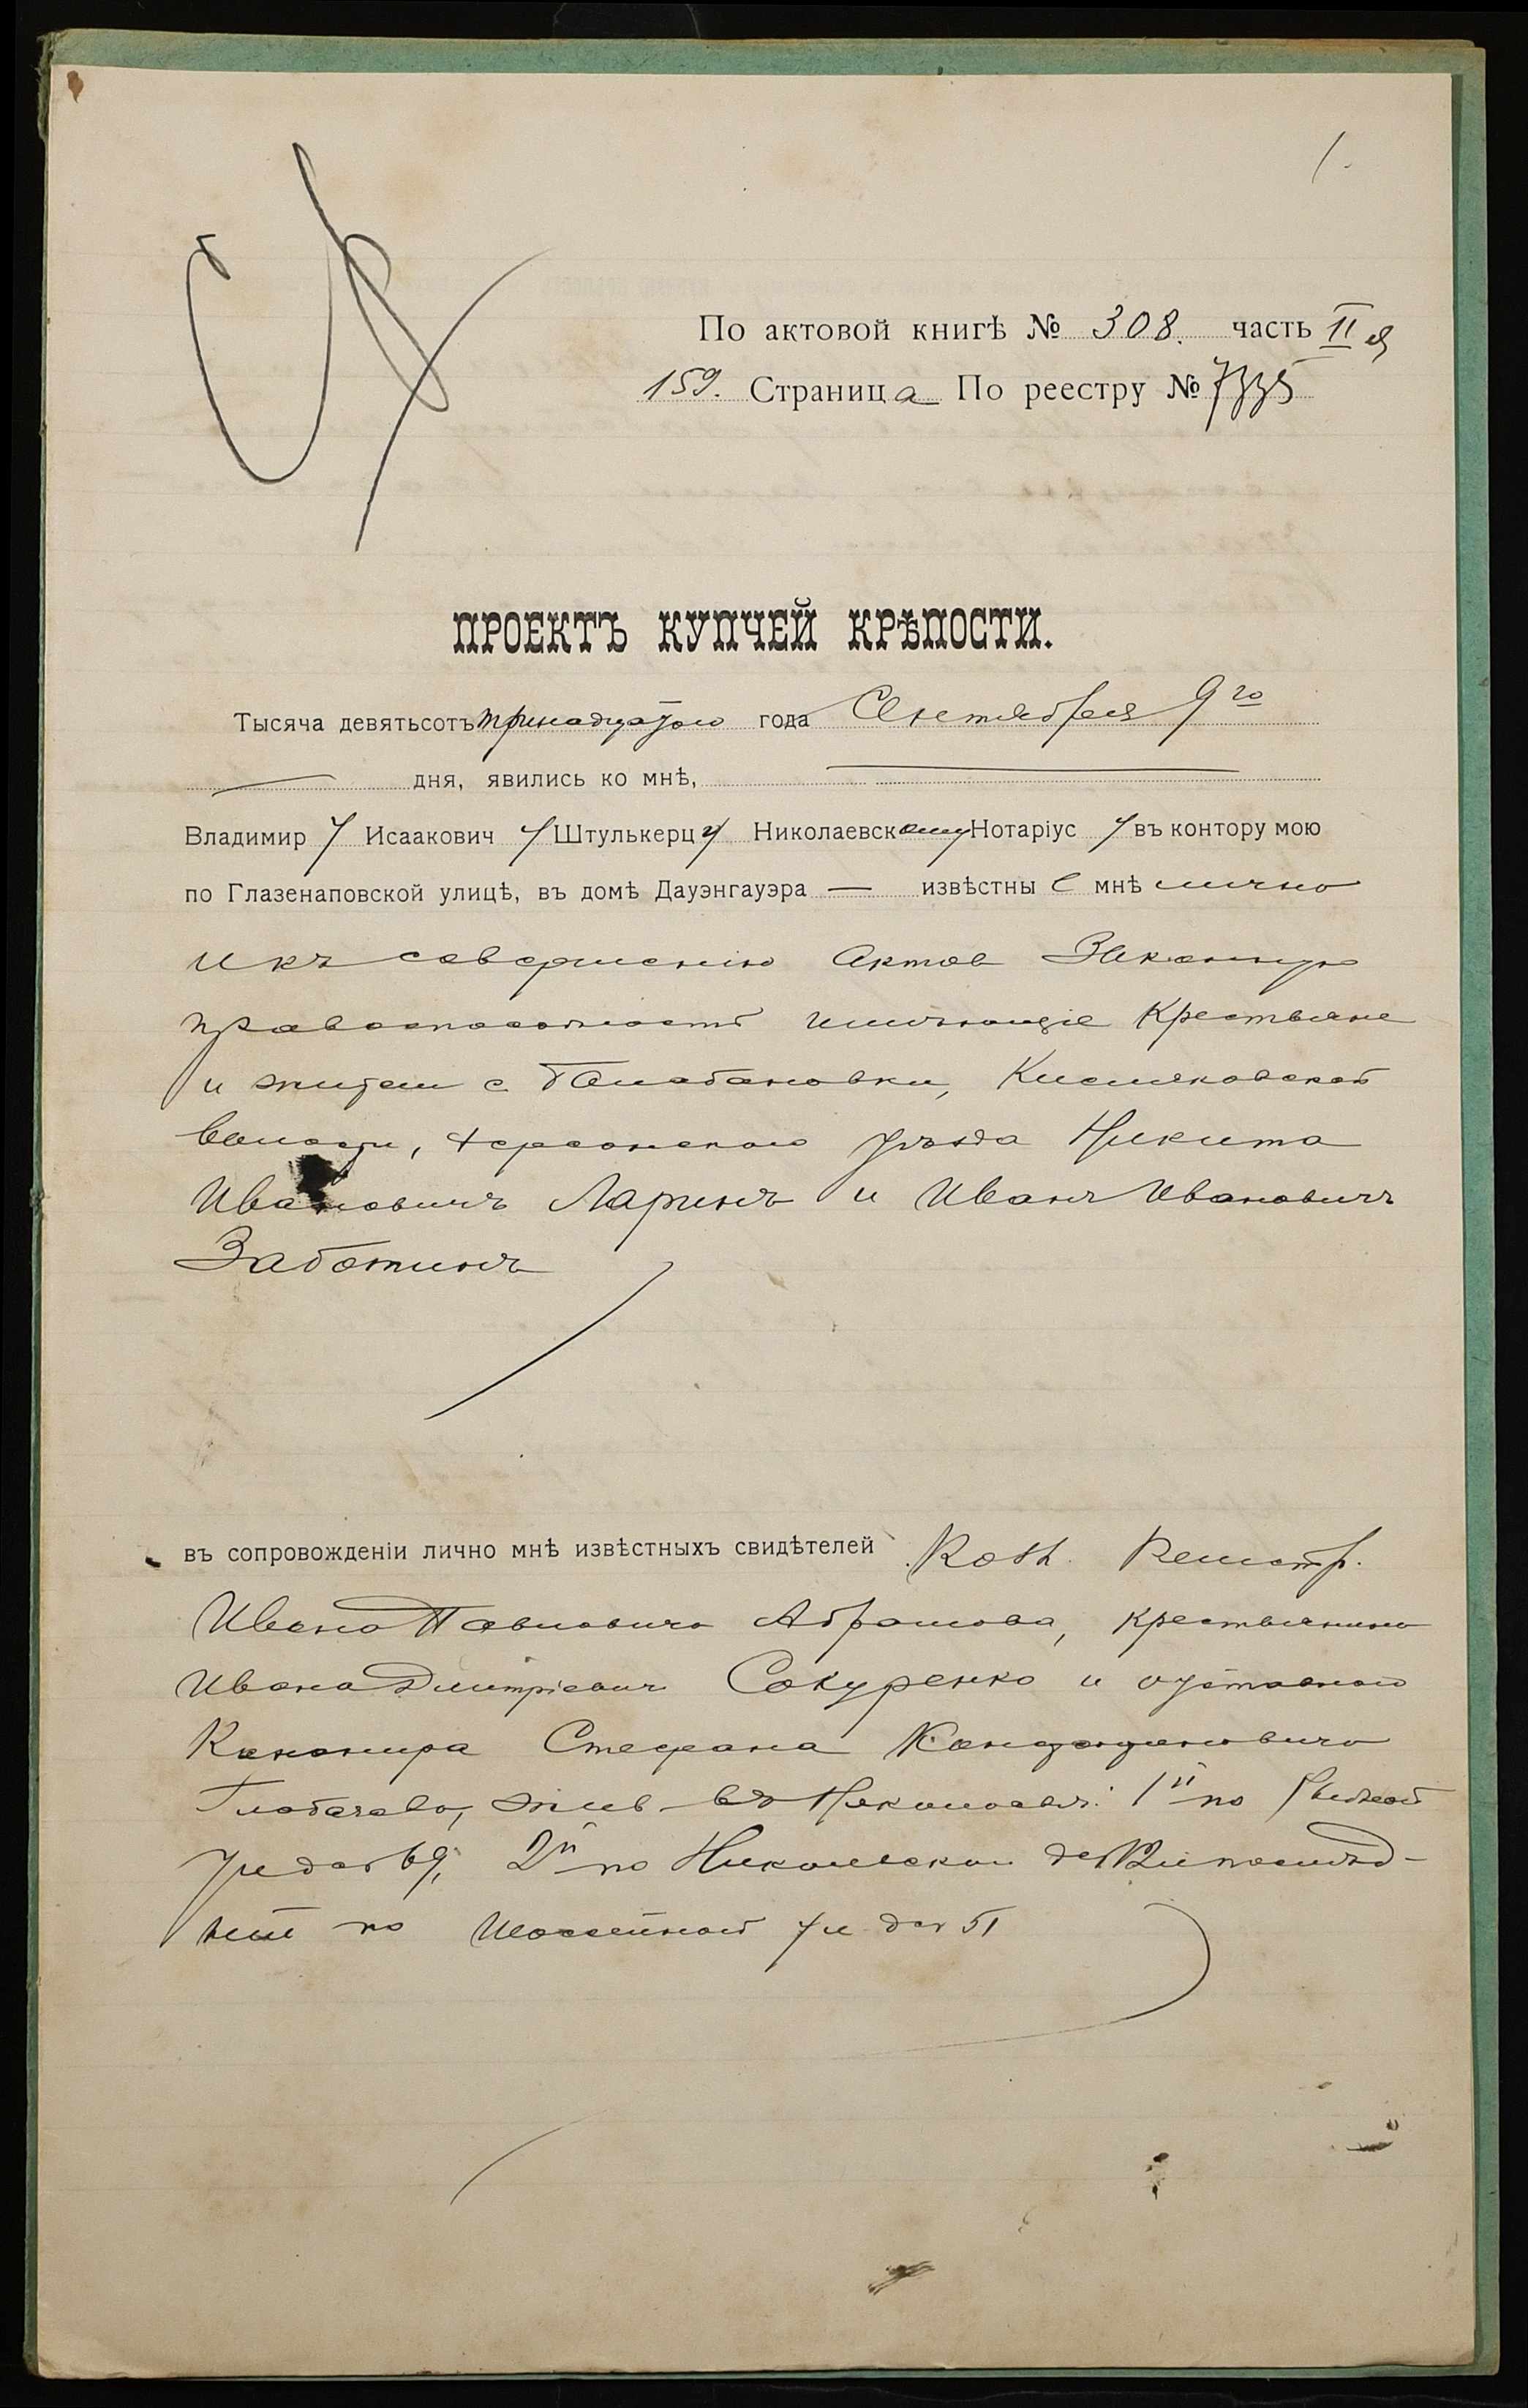 1.
По актовой книгѣ № 308. часть II я
159. Страница По реестру № 7335
ПРОЕКТЪ КУПЧЕЙ КРѢПОСТИ.
Тысяча девятьсотъ тринадцатого года Сентября 9 го
дня, явились ко мнѣ,
Владимиру Исааковичу Штулькерцу Николаевскому Нотаріусу въ контору мою
по Глазенаповской улицѣ, въ домѣ Дауэнгауэра — извѣстные мнѣ лично
и къ совершенію актов законную
правоспособность имѣющіе крестьяне
и жители с. Балабановки, Кисляковской
волости, Херсонского уѣзда Никита
Ивановичъ Ларинъ и Иванъ Ивановичъ
Заботинъ
въ сопровожденіи лично мнѣ извѣстныхъ свидѣтелей Регистр.
Ивана Павловича Абрамова, крестьянина
Ивана Дмитріевич Сокуренко и отставного
Канонира Стефана
Глобачева, жив въ Николаевѣ: 1й по
69, 2й по и послѣд-
ній по Шоссейной ул 51